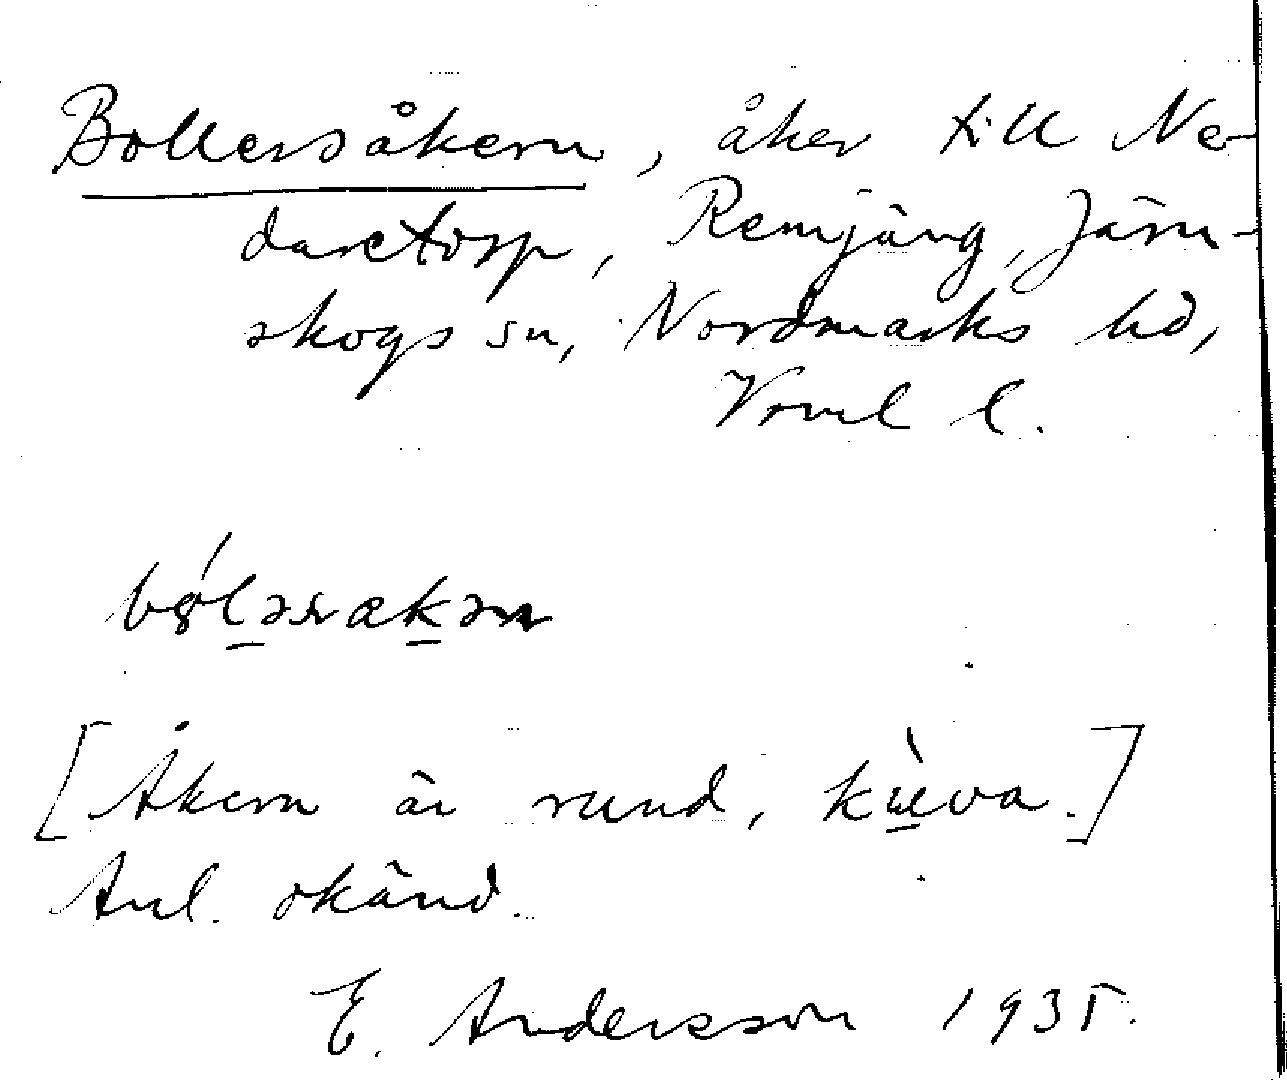 Bollersåkern, åker till Ne-
daretorp, Remjäng, Järn-
skogs sn, Nordmarks hd,
Värml l.
[Åkern är rund, kùva.]
Anl. okänd.
E. Andersson 1935.